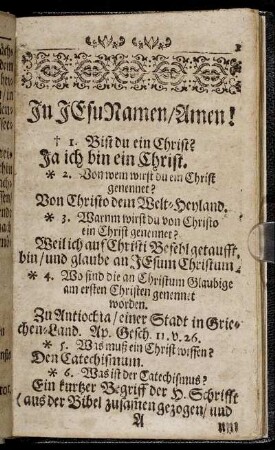 1
In JEsu Namen/Amen!
† 1. Bist du ein Christ?
Ja ich bin ein Christ.
* 2. Von wem wirst du ein Christ
genennet?
Von Christo dem Welt-Heyland.
* 3. Warum wirst du von Christo
ein Christ genennet?
Weil ich auf Christi Befehl getaufft
bin/und glaube an JEsum Christum.
* 4. Wo sind die an Christum Glaubige
am ersten Christen genennet
worden.
Zu Antiochia/einer Stadt in Grie-
chen-Land. Ap. Gesch. 11. v. 26.
* 5. Was muß ein Christ wissen?
Den Catechismum.
* 6. Was ist der Catechismus?
Ein kurtzer Begriff der H. Schrifft
(aus der Bibel zusamen gezogen/und
A